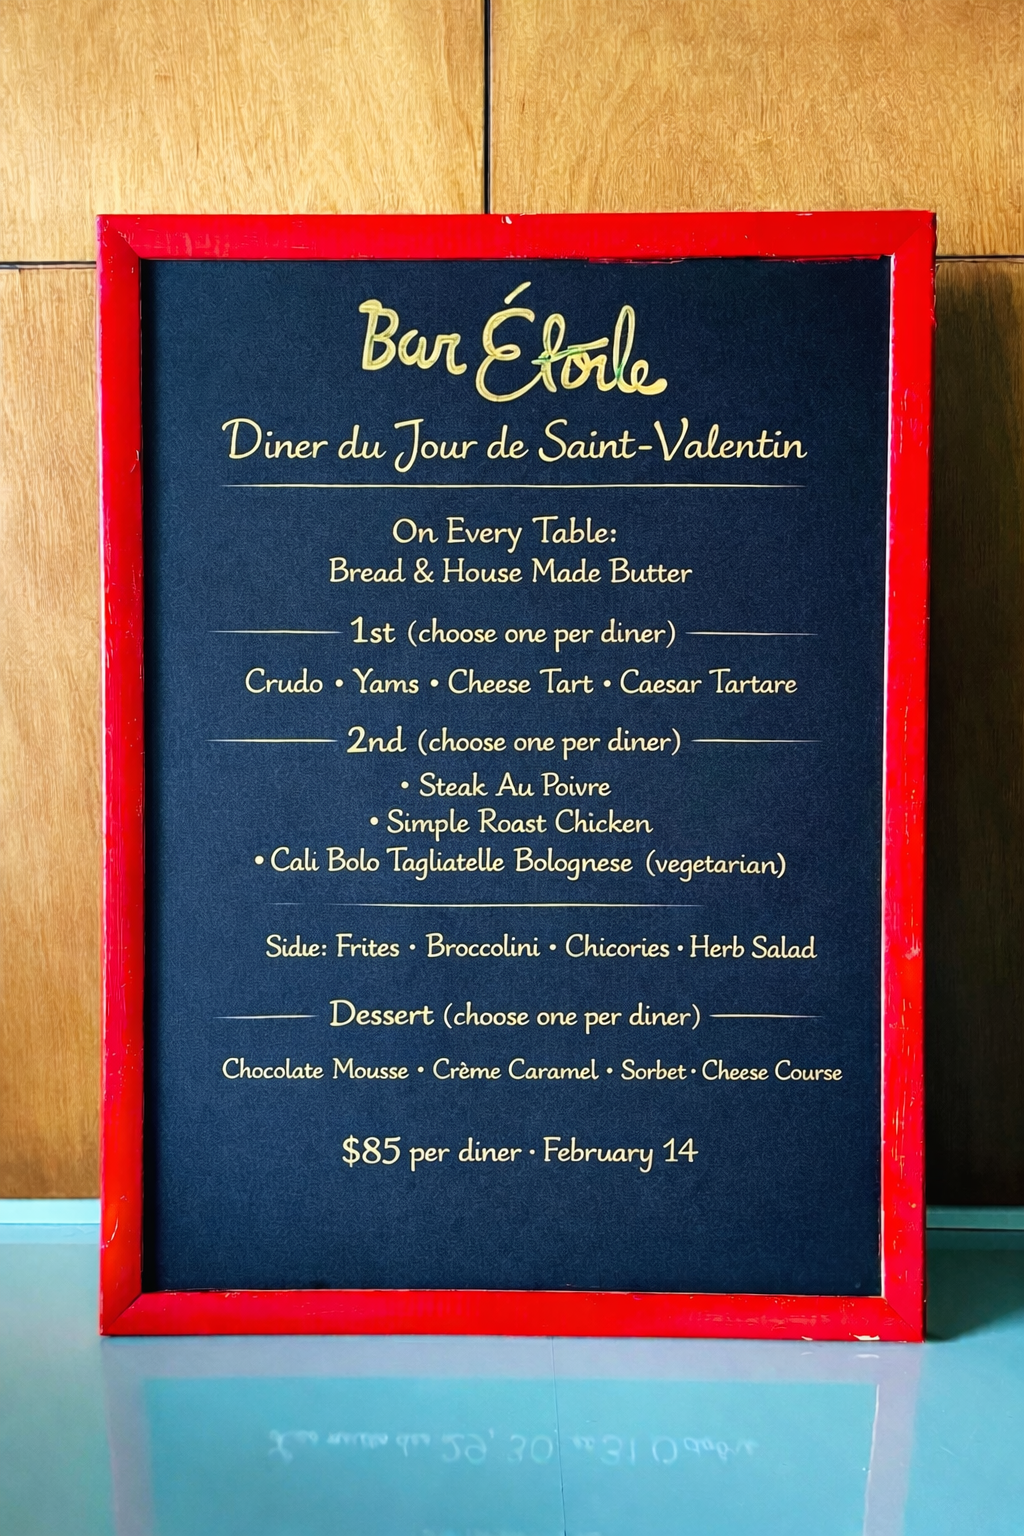 Bar Étoile
Diner du Jour de Saint-Valentin
On Every Table:
Bread & House Made Butter
1st (choose one per diner)
Crudo • Yams • Cheese Tart • Caesar Tartare
2nd (choose one per diner)
• Steak Au Poivre
• Simple Roast Chicken
• Cali Bolo Tagliatelle Bolognese (vegetarian)
Sidue: Frites • Broccolini • Chicories • Herb Salad
Dessert (choose one per diner)
Chocolate Mousse • Crème Caramel • Sorbet • Cheese Course
$85 per diner · February 14
29, 30 31 Octobre